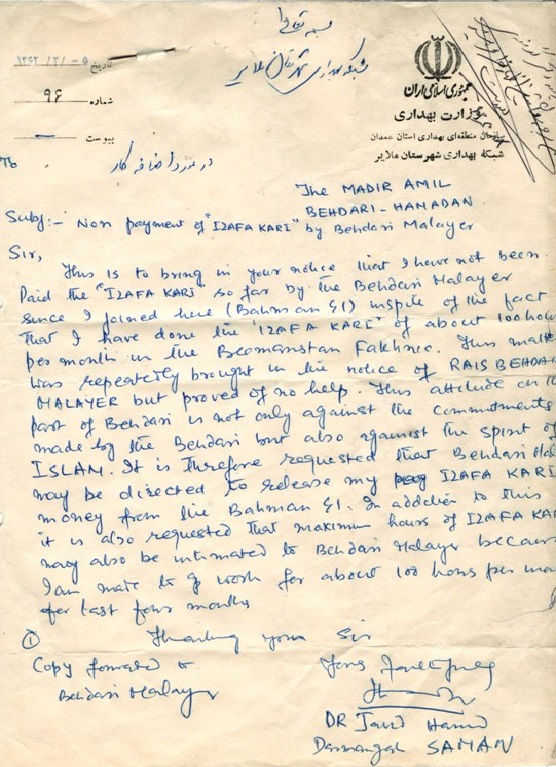 بسمه تعالی
شبکه بهداری شهرستان ملایر
جمهوری اسلامی ایران
وزارت بهداری
سازمان منطقه‌ای بهداری استان همدان
شبکه بهداری شهرستان ملایر
تاریخ ۵-/۲/-۱۳۶۲
شماره ۹۶
پیوست
در مورد اضافه کار
To
The MADIR AMIL
BEHDARI - HAMADAN
Subj:- Non payment of "IZAFA KARI" by Behdari Malayer
Sir,
This is to bring in your notice that I have not been
Paid the "IZAFA KARI" so far by the Behdari Malayer
since I joined here (Bahman 61) inspite of the fact
that I have done the "IZAFA KARI" of about 100 hou
per month in the Beemarestan Fakhrie. This matt
was repeatedly brought in the notice of RAIS BEHDA
MALAYER but proved of no help. This attitude on t
part of Behdari is not only against the commitments
made by the Behdari but also against the spirit of
ISLAM. It is therefore requested that Behdari Mal
may be directed to release my pay IZAFA KARI
money from the Bahman 61. In addition to this
it is also requested that maximum hours of IZAFA KA
may also be intimated to Behdari Malayer becau
I am made to work for about 100 hours per mo
for last four months
Thanking you Sir
① Copy forwarded to
Behdari Malayer
Yours faithfully
DR Javid Hamid
Darmangah SAMAN